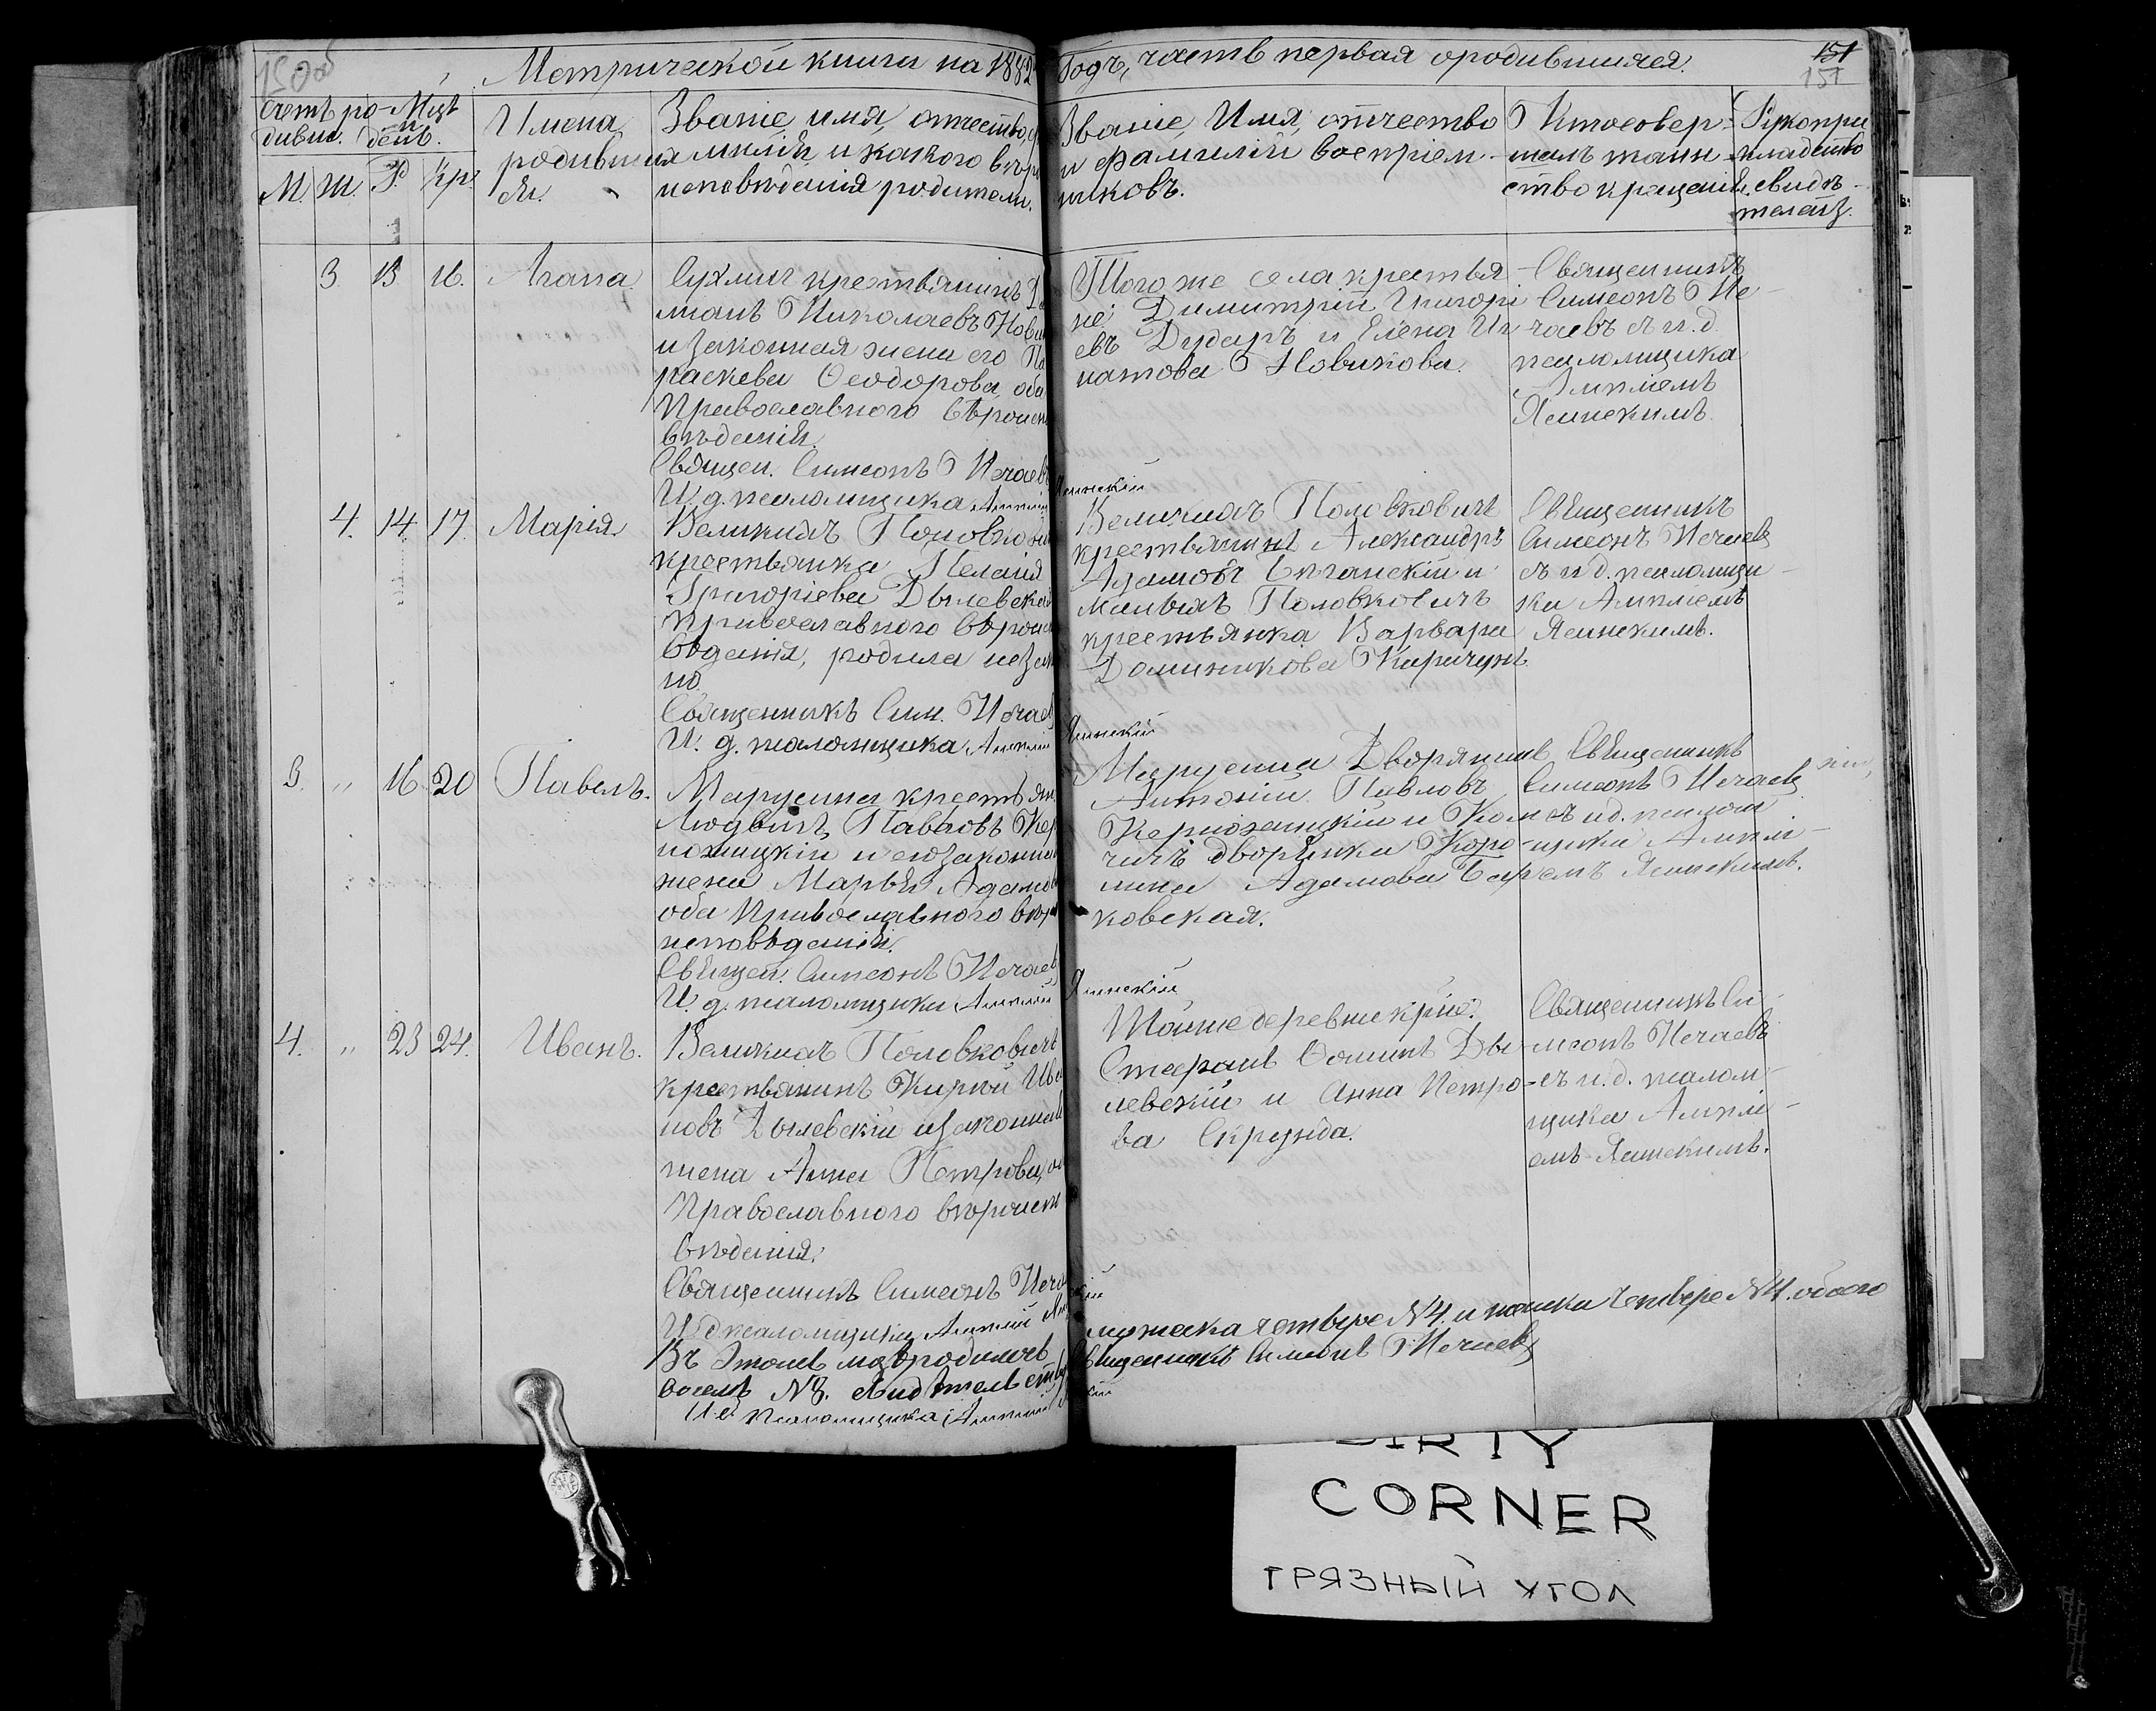 150об
Метрической книги на 1882
Годъ, часть первая о родившихся.
151
151
Счетъ ро-
дивш.
Мцъ
и
день.
М. Ж. Р. Кр.
Имена
родивших
ся.
Званіе, имя, отчество,
милія, и какого вѣро
исповѣданія родители.
Званіе, Имя, отчество
и фамилія воспріем-
никовъ.
Кто совер-
шалъ таин-
ство крещенія.
Рукопри
кладство
свидѣ-
телей.
3. 13 16. Агапа.
Сухличъ крестьянинъ Да
міанъ Николаевъ Нови
и законная жена его Па
раскева Ѳеодорова, оба
Православнаго вѣроиспо
вѣданія.
Священ. Симеонъ Нечаевъ
И. д. псаломщика Амплій
Яшинскій
Того же села крестья-
не: Димитрій Григорі
евъ Дударъ и Елена Иг
натова Новикова.
Священникъ
Симеонъ Не-
чаевъ съ и. д.
псаломщика
Ампліемъ
Яшинскимъ.
4. 14. 17. Марія.
Великихъ Половкович
крестьянка Пелагія
Григоріева Дылевская
Православнаго вѣроиспо
вѣданія, родила незакон
но.
Священникъ Сим. Нечаев
И. д. псаломщика Амплій
Яшинскій
Великихъ Половковичъ
крестьянинъ Александръ
Адамовъ и
малыхъ Половковичъ
крестьянка Варвара
Доминикова Киричукъ
Священникъ
Симеонъ Нечаевъ
съ и д. псаломщи-
каАмпліемъ
Яшинскимъ.
3. " 16 20 Павелъ.
Марусина крестьян
Людвигъ Павловъ Кер
ножицкій и его законная
жена Марья Адамова
оба Православнаго вѣро
исповѣданія.
Священ. Симеонъ Нечаев
И. д. псаломщика Амплій
Яшинскій
Марусина Дворянинъ
Антоній Павловъ
Керножицкій и
дворянка
Адамова
ковская.
Священникъ
Симеонъ Нечаевъ
съ и д. псалом
щика Амплі-
емъ Яшинскимъ.
4. " 23 24. Иванъ.
Великихъ Половковичъ
крестьянинъ Кирилъ Ива
новъ Дылевскій и законная
жена Анна Петрова, оба
Православнаго вѣроиспо
вѣданія.
Священникъ Симеонъ Неча
И д псаломщика Амплій
Тойже деревни крне:
Стефанъ Ѳоминъ Ды-
левскій и Анна Петро-
ва Скрунда.
Священникъ Си-
меонъ Нечаевъ
съ и. д. псалом-
щика Амплі-
емъ Яшинскимъ.
Въ Этомъ мцѣ родилось
мужеска четверо №4. и женска четверо №4. обоего
восемь №8. свидѣтельств
Священникъ Симеонъ Нечаевъ
И. д. Псаломщика Амплій
DIRTY
CORNER
ГРЯЗНЫЙ УГОЛ